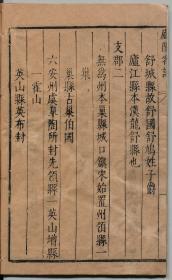 舒城縣故舒國舒鳩姓子爵
廬江縣本漢龍舒縣也
支郡二
無為州本巢縣城口鎮宋始置州領縣一
巢
巢縣古巢伯國
六安州虞皋陶所封先領縣一英山增縣
一霍山
英山縣英布封